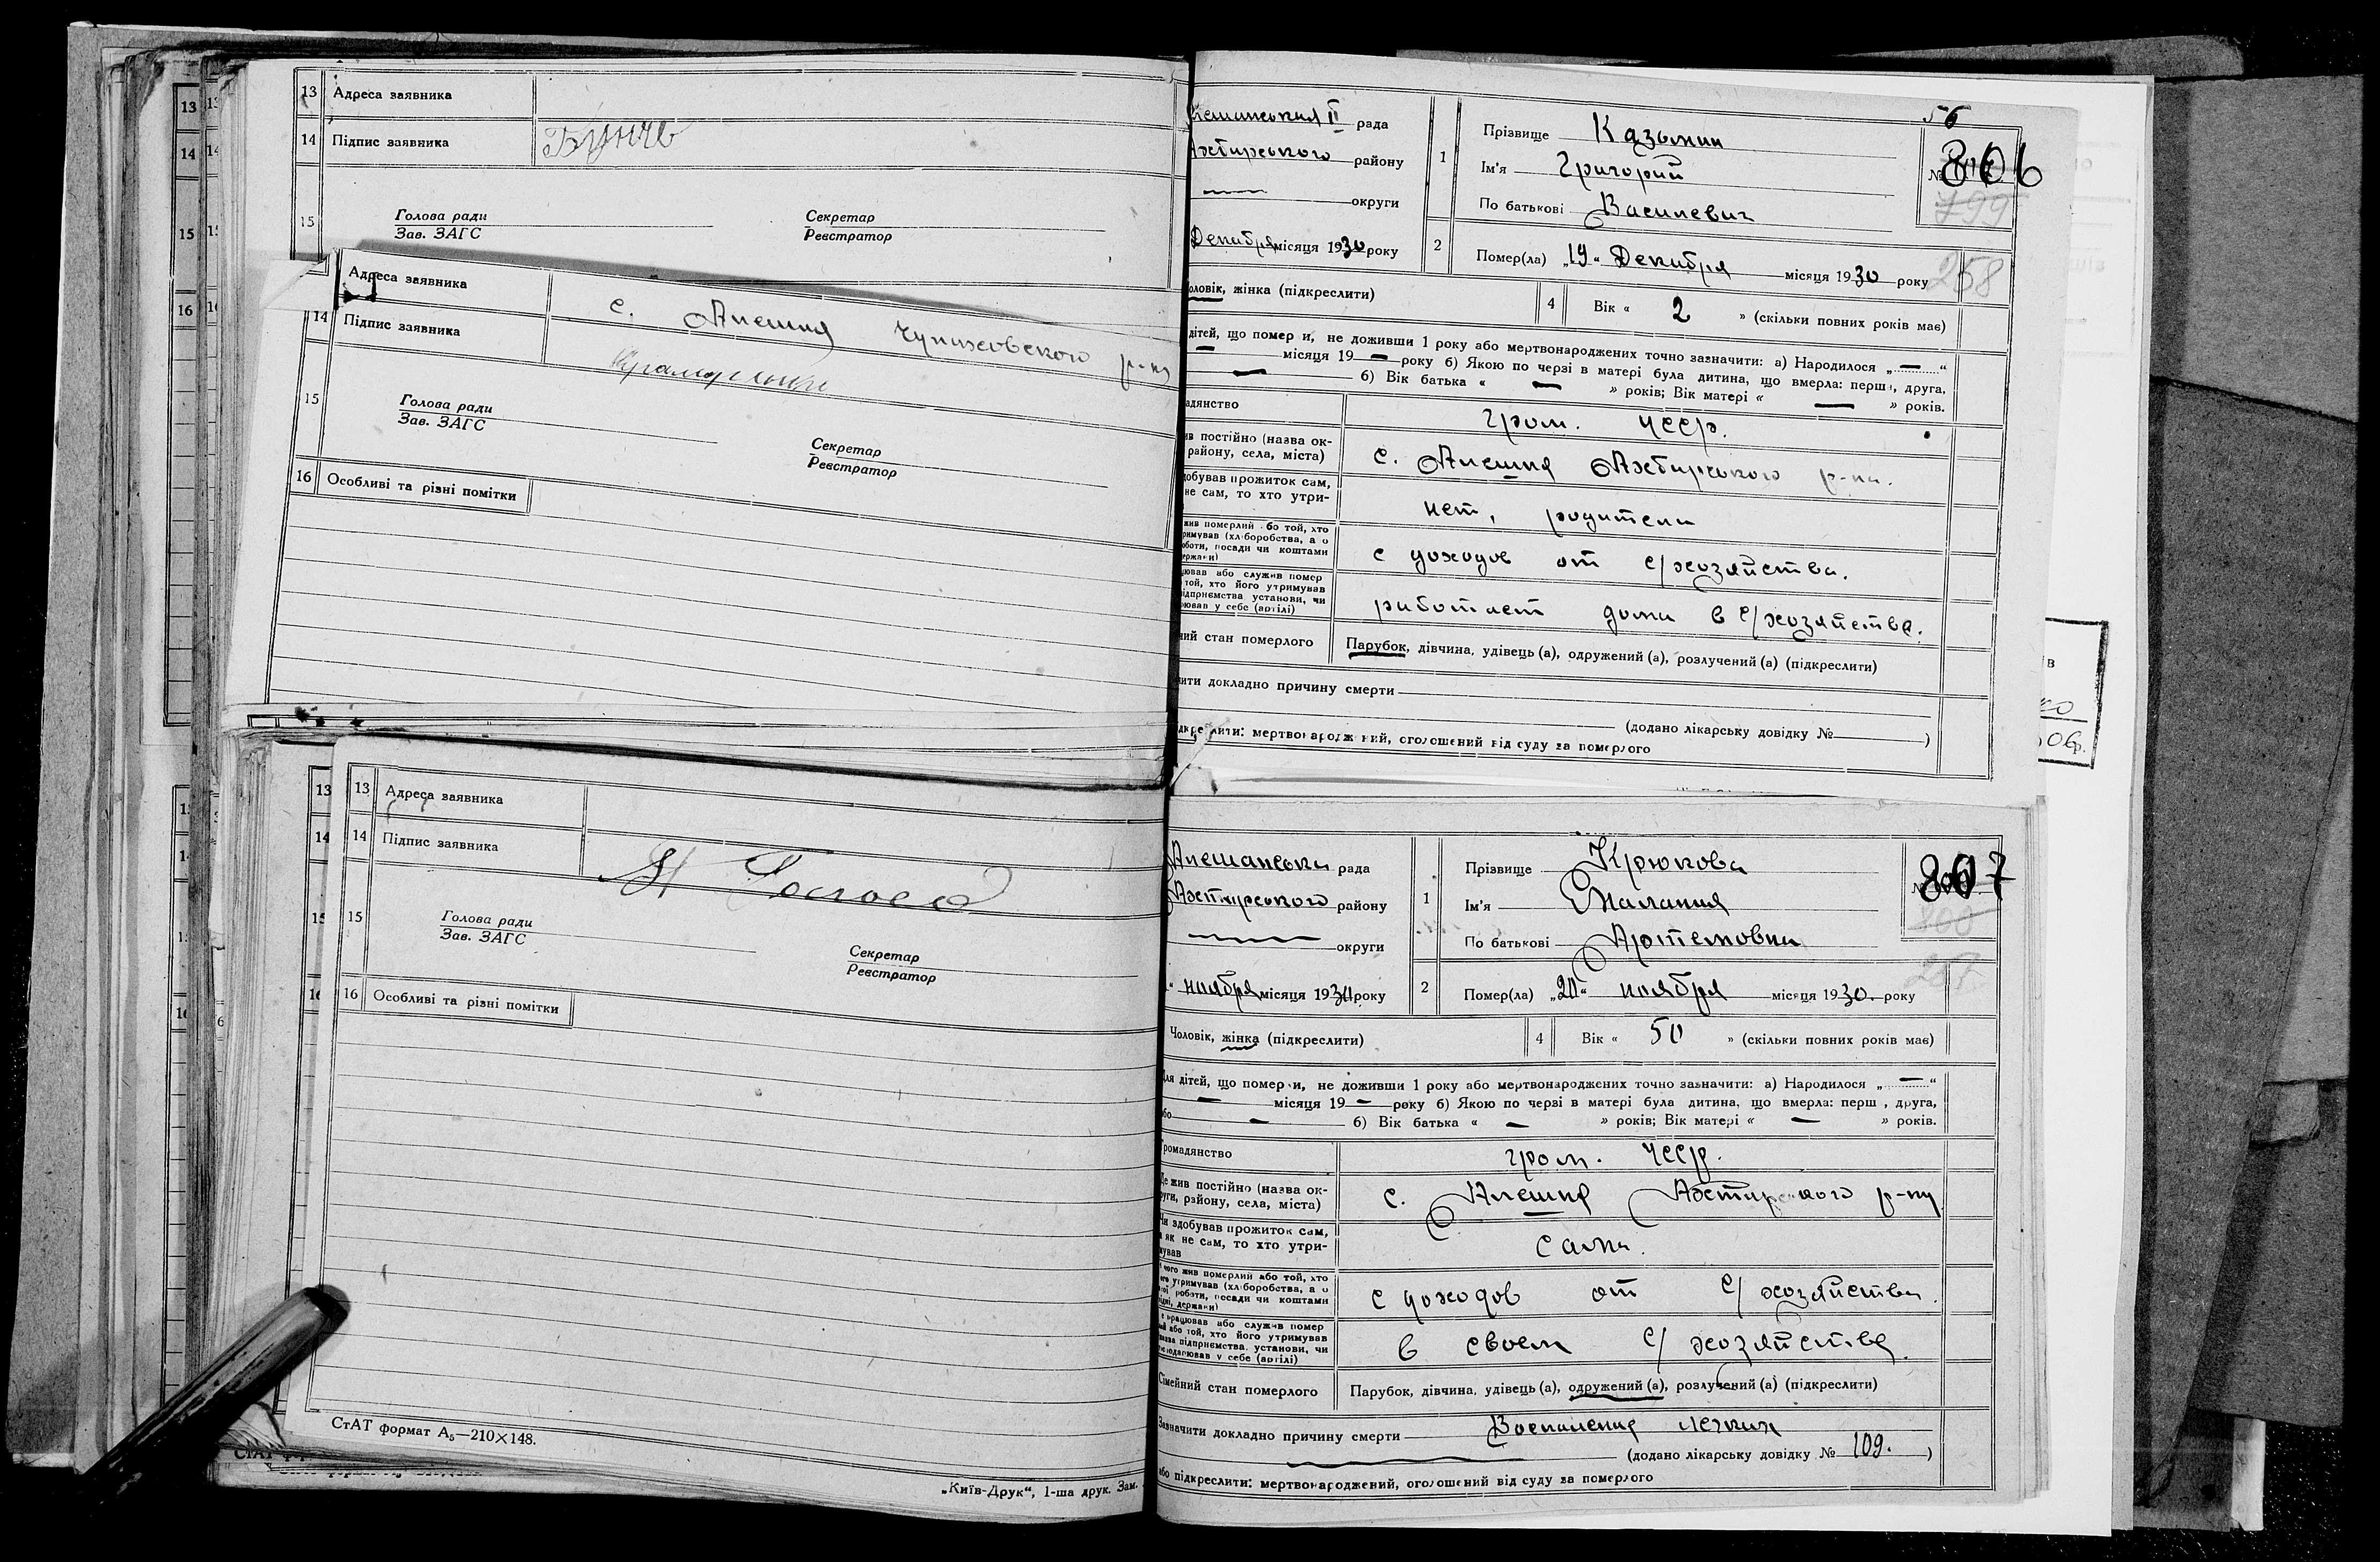 13 Адреса заявника
14 Підпис заявника
15 Голова ради Секретар
Зав. ЗАГС Реєстратор
Адреса заявника с. Алешня Чупиховского р-ну
14 Підпис заявника
15 Голова ради
Зав. ЗАГС
Секретар
Реєстратор
16 Особливі та різні помітки
13 Адреса заявника
14 Підпис заявника
15 Голова ради
Зав. ЗАГС
Секретар
Реєстратор
16 Особливі та різні помітки
СтАТ формат А5—210×148.
„Київ-Друк“, 1-ша друк. Зам.
56
рада
району
округи
Декабря місяця 1930 року
1 Прізвище Казьмин
Ім'я Григорий
По батькові Василевич
№ 806
799
2 Помер(ла) „19“ Декабря місяця 1930 року
258
оловік, жінка (підкреслити)
4 Вік « 2 » (скільки повних років має)
дітей, що померли, не доживши 1 року або мертвонароджених точно зазначити: а) Народилося „—“
— місяця 19 — року б) Якою по черзі в матері була дитина, що вмерла: перша, друга,
— б) Вік батька « — » років; Вік матері « — » років.
адянство гром. УССР.
ив постійно (назва ок-
району, села, міста) с. Алешня Ахтирського р-на.
добував прожиток сам,
не сам, то хто утри- нет, родители
жив померлий або той, хто
римував (хліборобства, а о
оботи, посади чи коштами
ержави) с доходов от с/хозяйства.
цював або служив помер
той, хто його утримував
ідприємства установи, чи
рював у себе (артілі) работает дома в с/хозяйстве.
ний стан померлого Парубок, дівчина, удівець (а), одружений (а), розлучений (а) (підкреслити)
чити докладно причину смерти
(додано лікарську довідку № )
ідкреслити: мертвонароджений, оголошений від суду за померлого
Алешанська рада
Ахтирського району
округи
ноября місяця 1930 року
1 Прізвище Крюкова
Ім'я Малания
По батькові Артемовна
№ 807
800
2 Помер(ла) „20“ ноября місяця 1930. року
Чоловік, жінка (підкреслити)
4 Вік « 50 » (скільки повних років має)
Для дітей, що померли, не доживши 1 року або мертвонароджених точно зазначити: а) Народилося „—“
— місяця 19 — року б) Якою по черзі в матері була дитина, що вмерла: перш , друга,
бо — б) Вік батька « — » років; Вік матері « — » років.
Громадянство гром. УССР.
Де жив постійно (назва ок-
руги, району, села, міста) с. Алешня Ахтирського р-ну
Чи здобував прожиток сам,
а як не сам, то хто утри-
мував сама.
чого жив померлий або той, хто
його утримував (хліборобства, а о
ої роботи, посади чи коштами
ідні, держави) с доходов от с/хозяйства.
е працював або служив помер
ий або той, хто його утримував
назва підприємства, установи, чи
подарював у себе (артілі) в своем с/хозяйстве.
Сімейний стан померлого Парубок, дівчина, удівець (а), одружений (а), розлучений (а) (підкреслити)
Зазначити докладно причину смерти Воспаления легких
(додано лікарську довідку № 109. )
або підкреслити: мертвонароджений, оголошений від суду за померлого